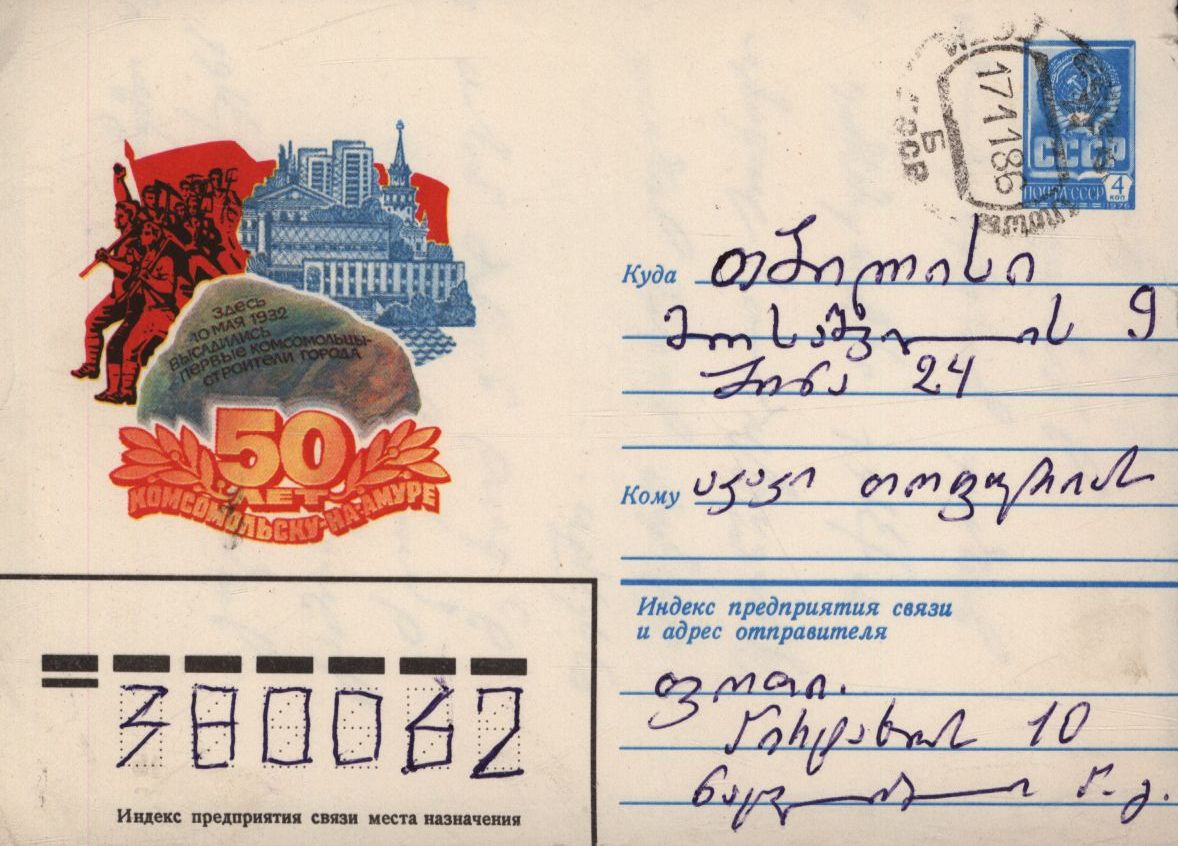 Здесь
10 мая 1932
высадились
первые комсомольцы-
строители города
50
ЛЕТ
КОМСОМОЛЬСКУ-НА-АМУРЕ
17 11 86
СССР
ПОЧТА СССР 4
КОП
1976
Куда თბილისი
9
ბინა 24
Кому აკაკი თოფურიას
Индекс предприятия связи
и адрес отправителя
ფოთი.
10
380062
Индекс предприятия связи места назначения